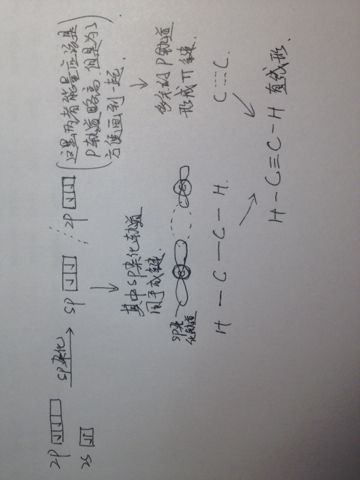 2P
2S
SP杂化
SP
2P
(这里两者能量应该是
P轨道略高,但是为了
方便画到一起)
其中SP杂化轨道
用于成键.
多余的P轨道
形成π键.
SP杂
化轨道
H — C — C — H.
C ┄ C.
H - C ≡ C - H 直线形.